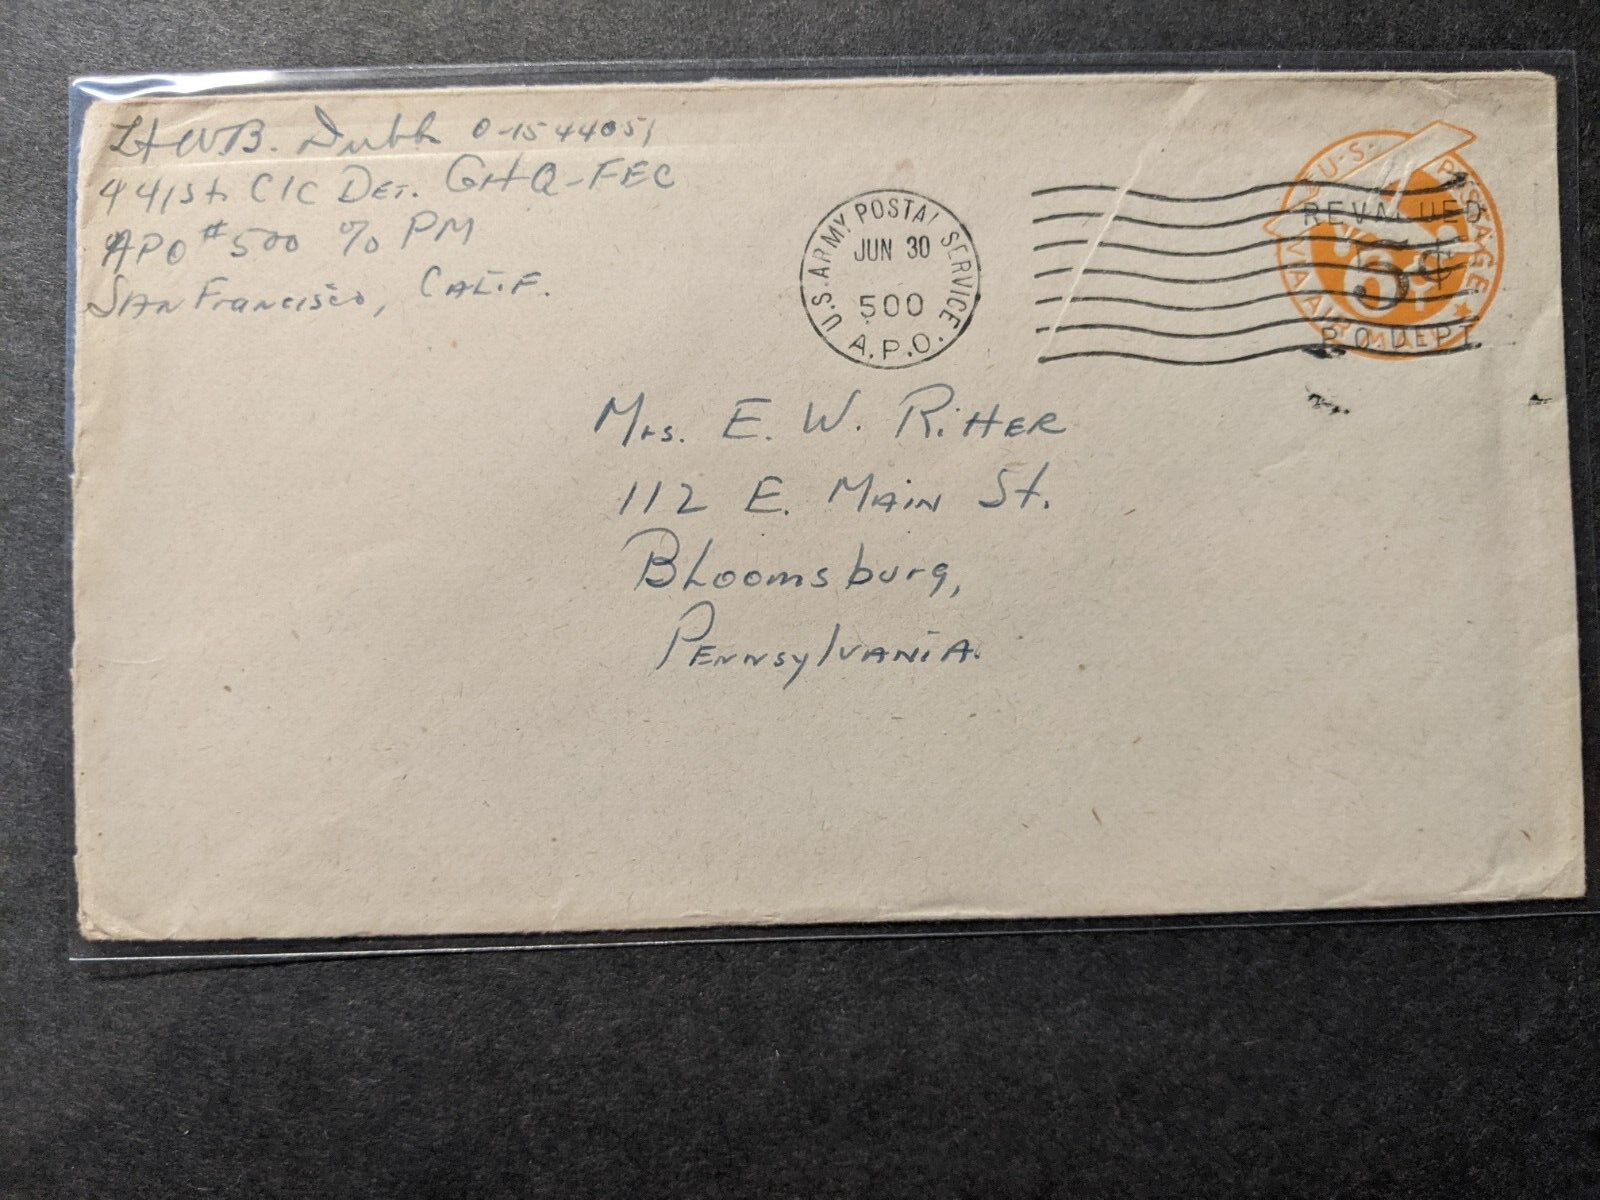 Lt W B. Dubb O-1544051
441st CIC Det. GHQ-FEC
APO #500 % PM
San Francisco, Calif.
U.S. ARMY POSTAL SERVICE
JUN 30
500
A.P.O.
U.S. POSTAGE
VIA AIR MAIL
REVALUED
5¢
P.O. DEPT.
Mrs. E. W. Ritter
112 E. Main St.
Bloomsburg,
Pennsylvania.